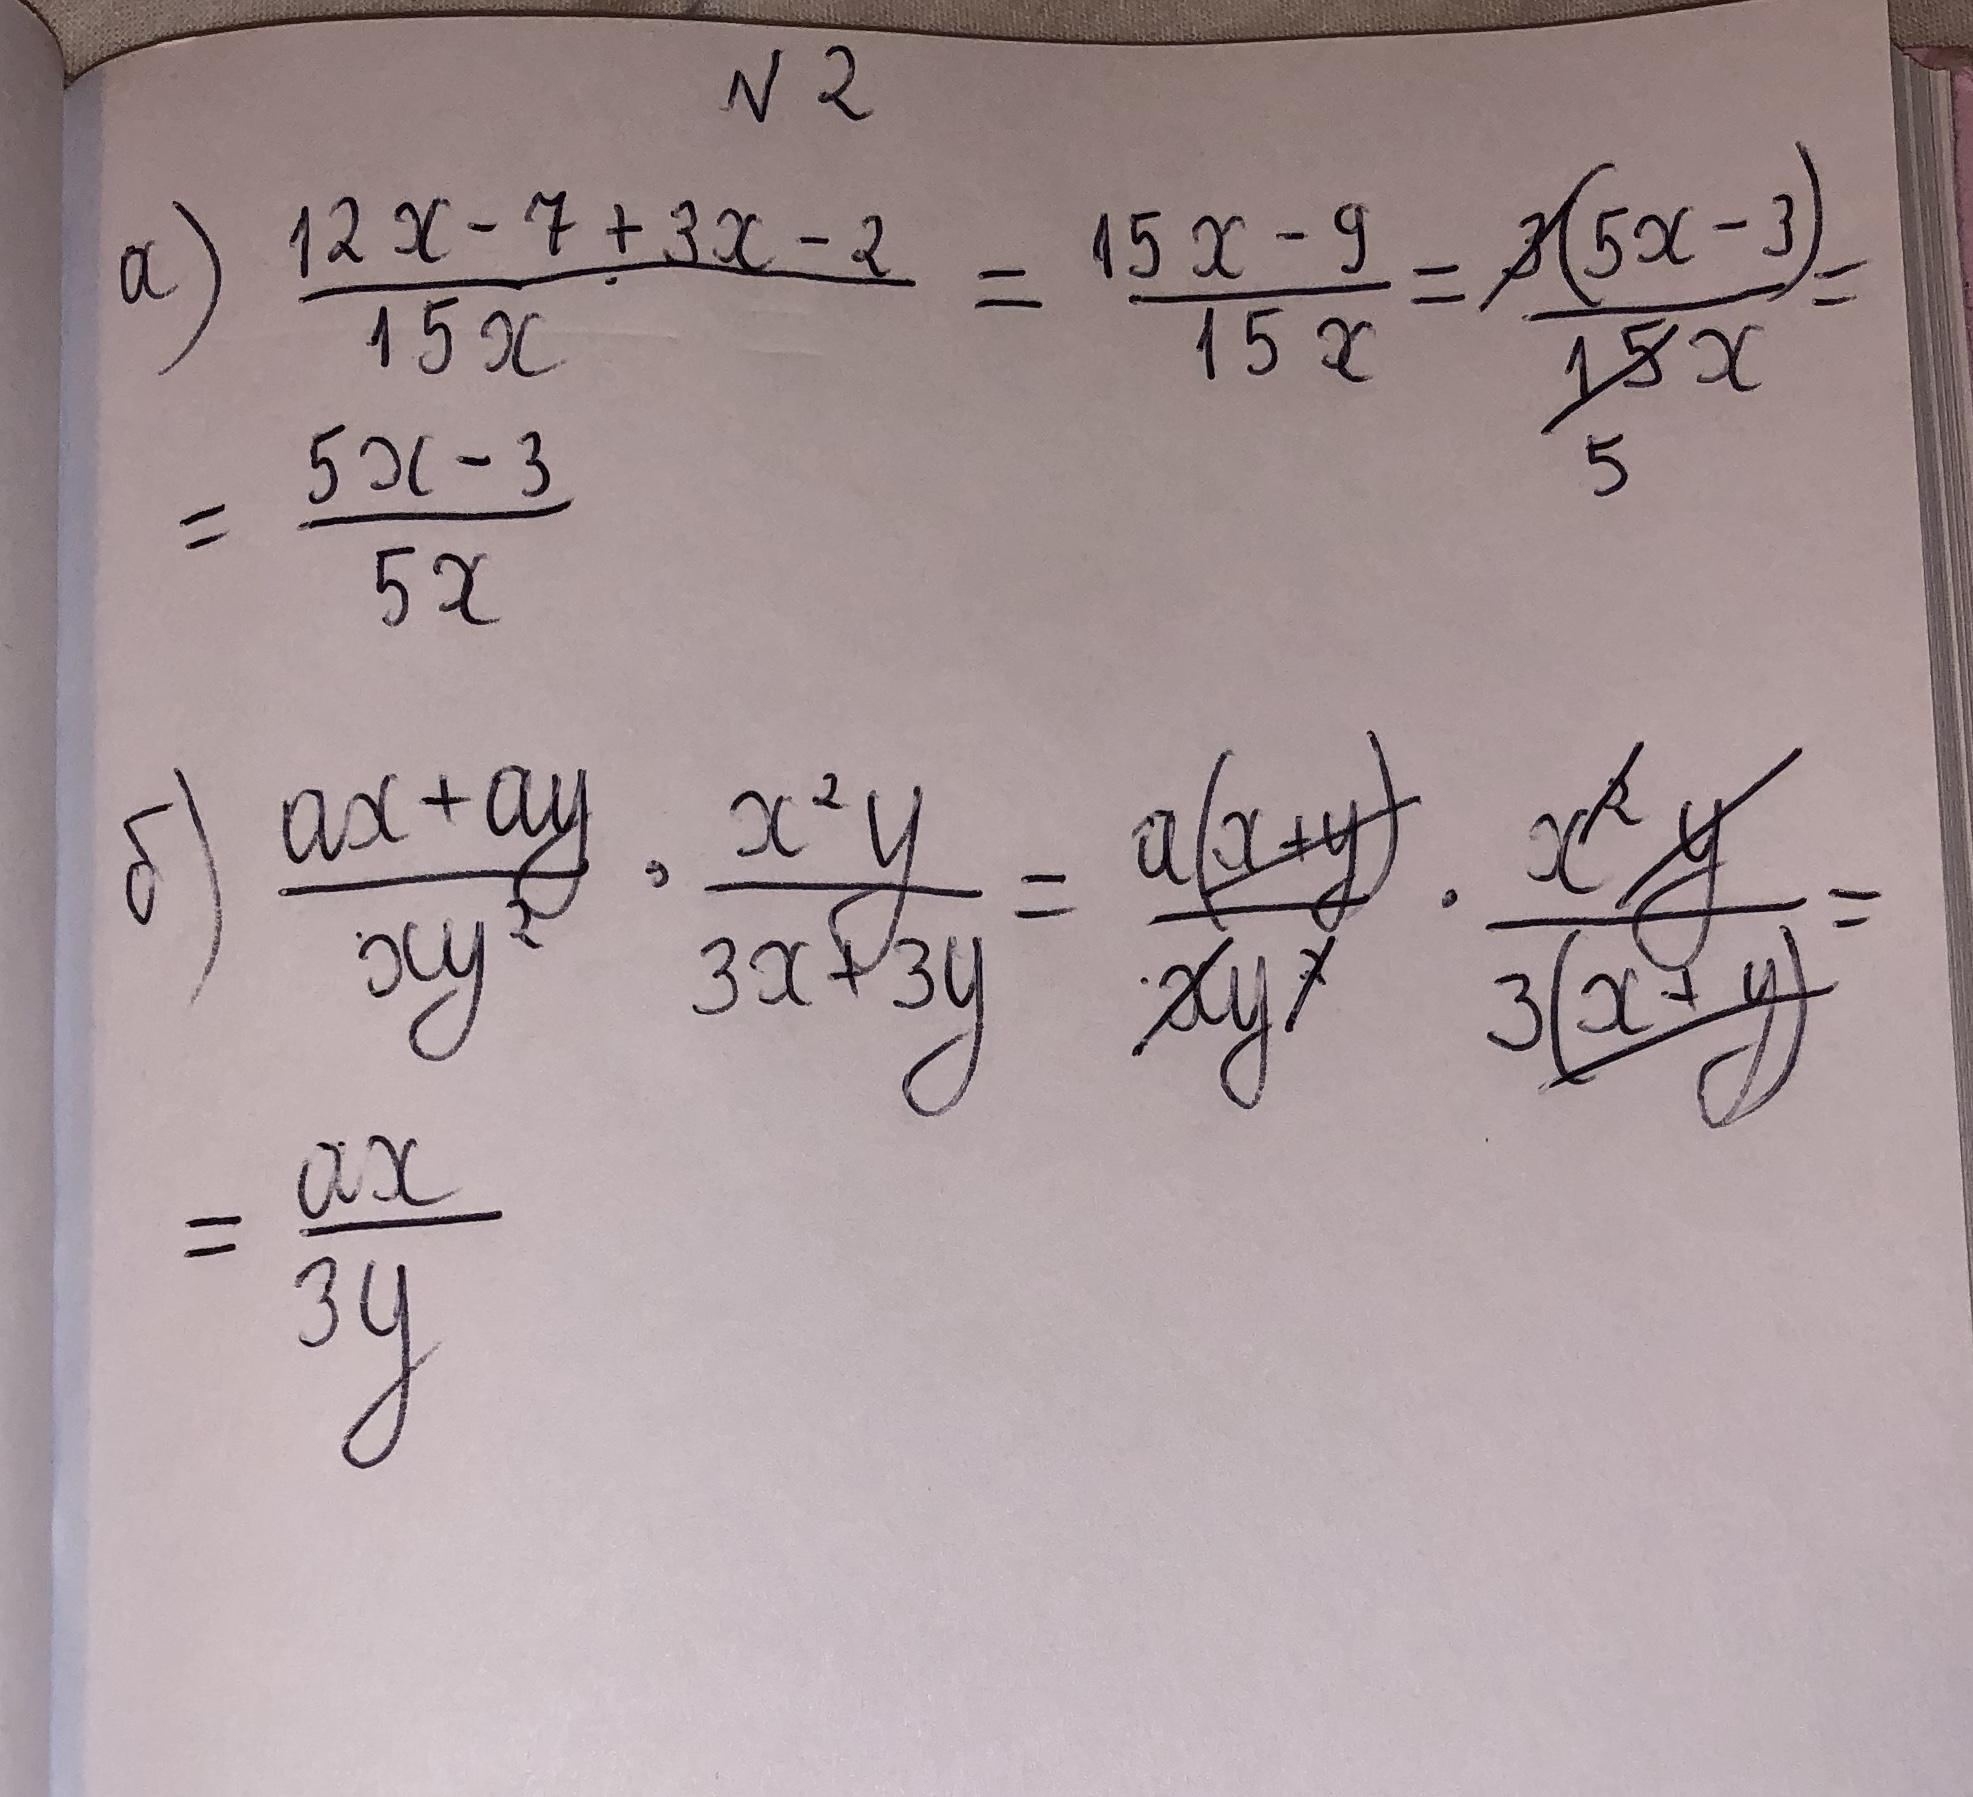 N 2
а) (12x - 7 + 3x - 2)/(15x) = (15x - 9)/(15x) = (3(5x - 3))/(15x) =
5
= (5x - 3)/(5x)
б) (ax + ay)/(xy²) · (x²y)/(3x + 3y) = (a(x+y))/(xy²) · (x²y)/(3(x+y)) =
= (ax)/(3y)